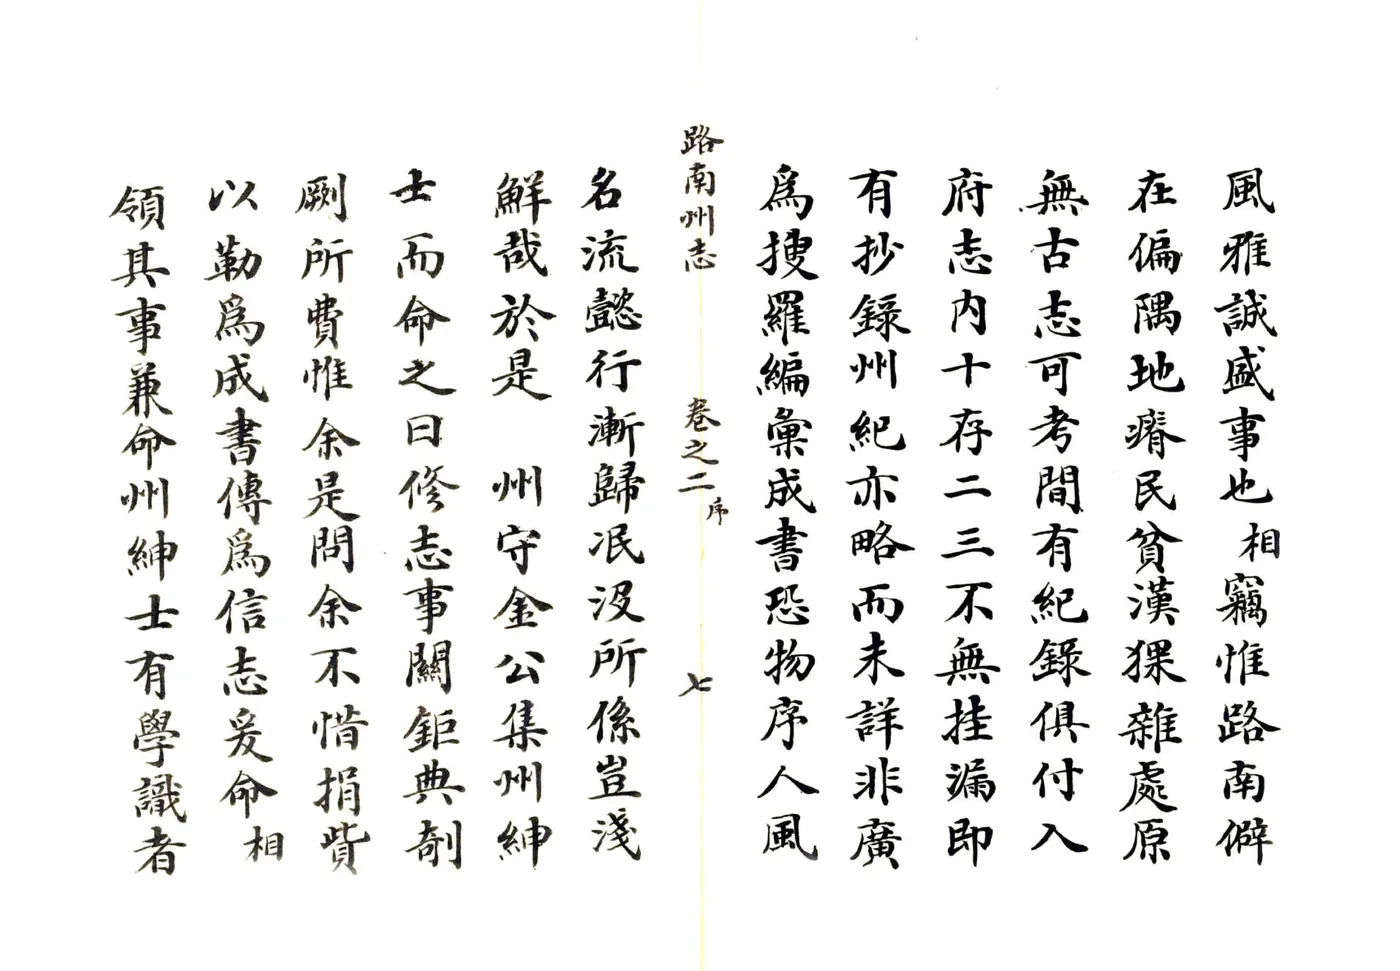 風雅誠盛事也相竊惟路南僻
在偏隅地瘠民貧漢猓雜處原
無古志可考間有紀錄俱付入
府志内十存二三不無挂漏即
有抄錄州紀亦略而未詳非廣
爲搜羅編彙成書恐物序人風
路南州志 卷之二 序 七
名流懿行漸歸泯沒所係豈淺
鮮哉於是 州守金公集州紳
士而命之曰修志事關鉅典剞
劂所費惟余是問余不惜捐貲
以勒爲成書傳爲信志爰命相
領其事兼命州紳士有學識者